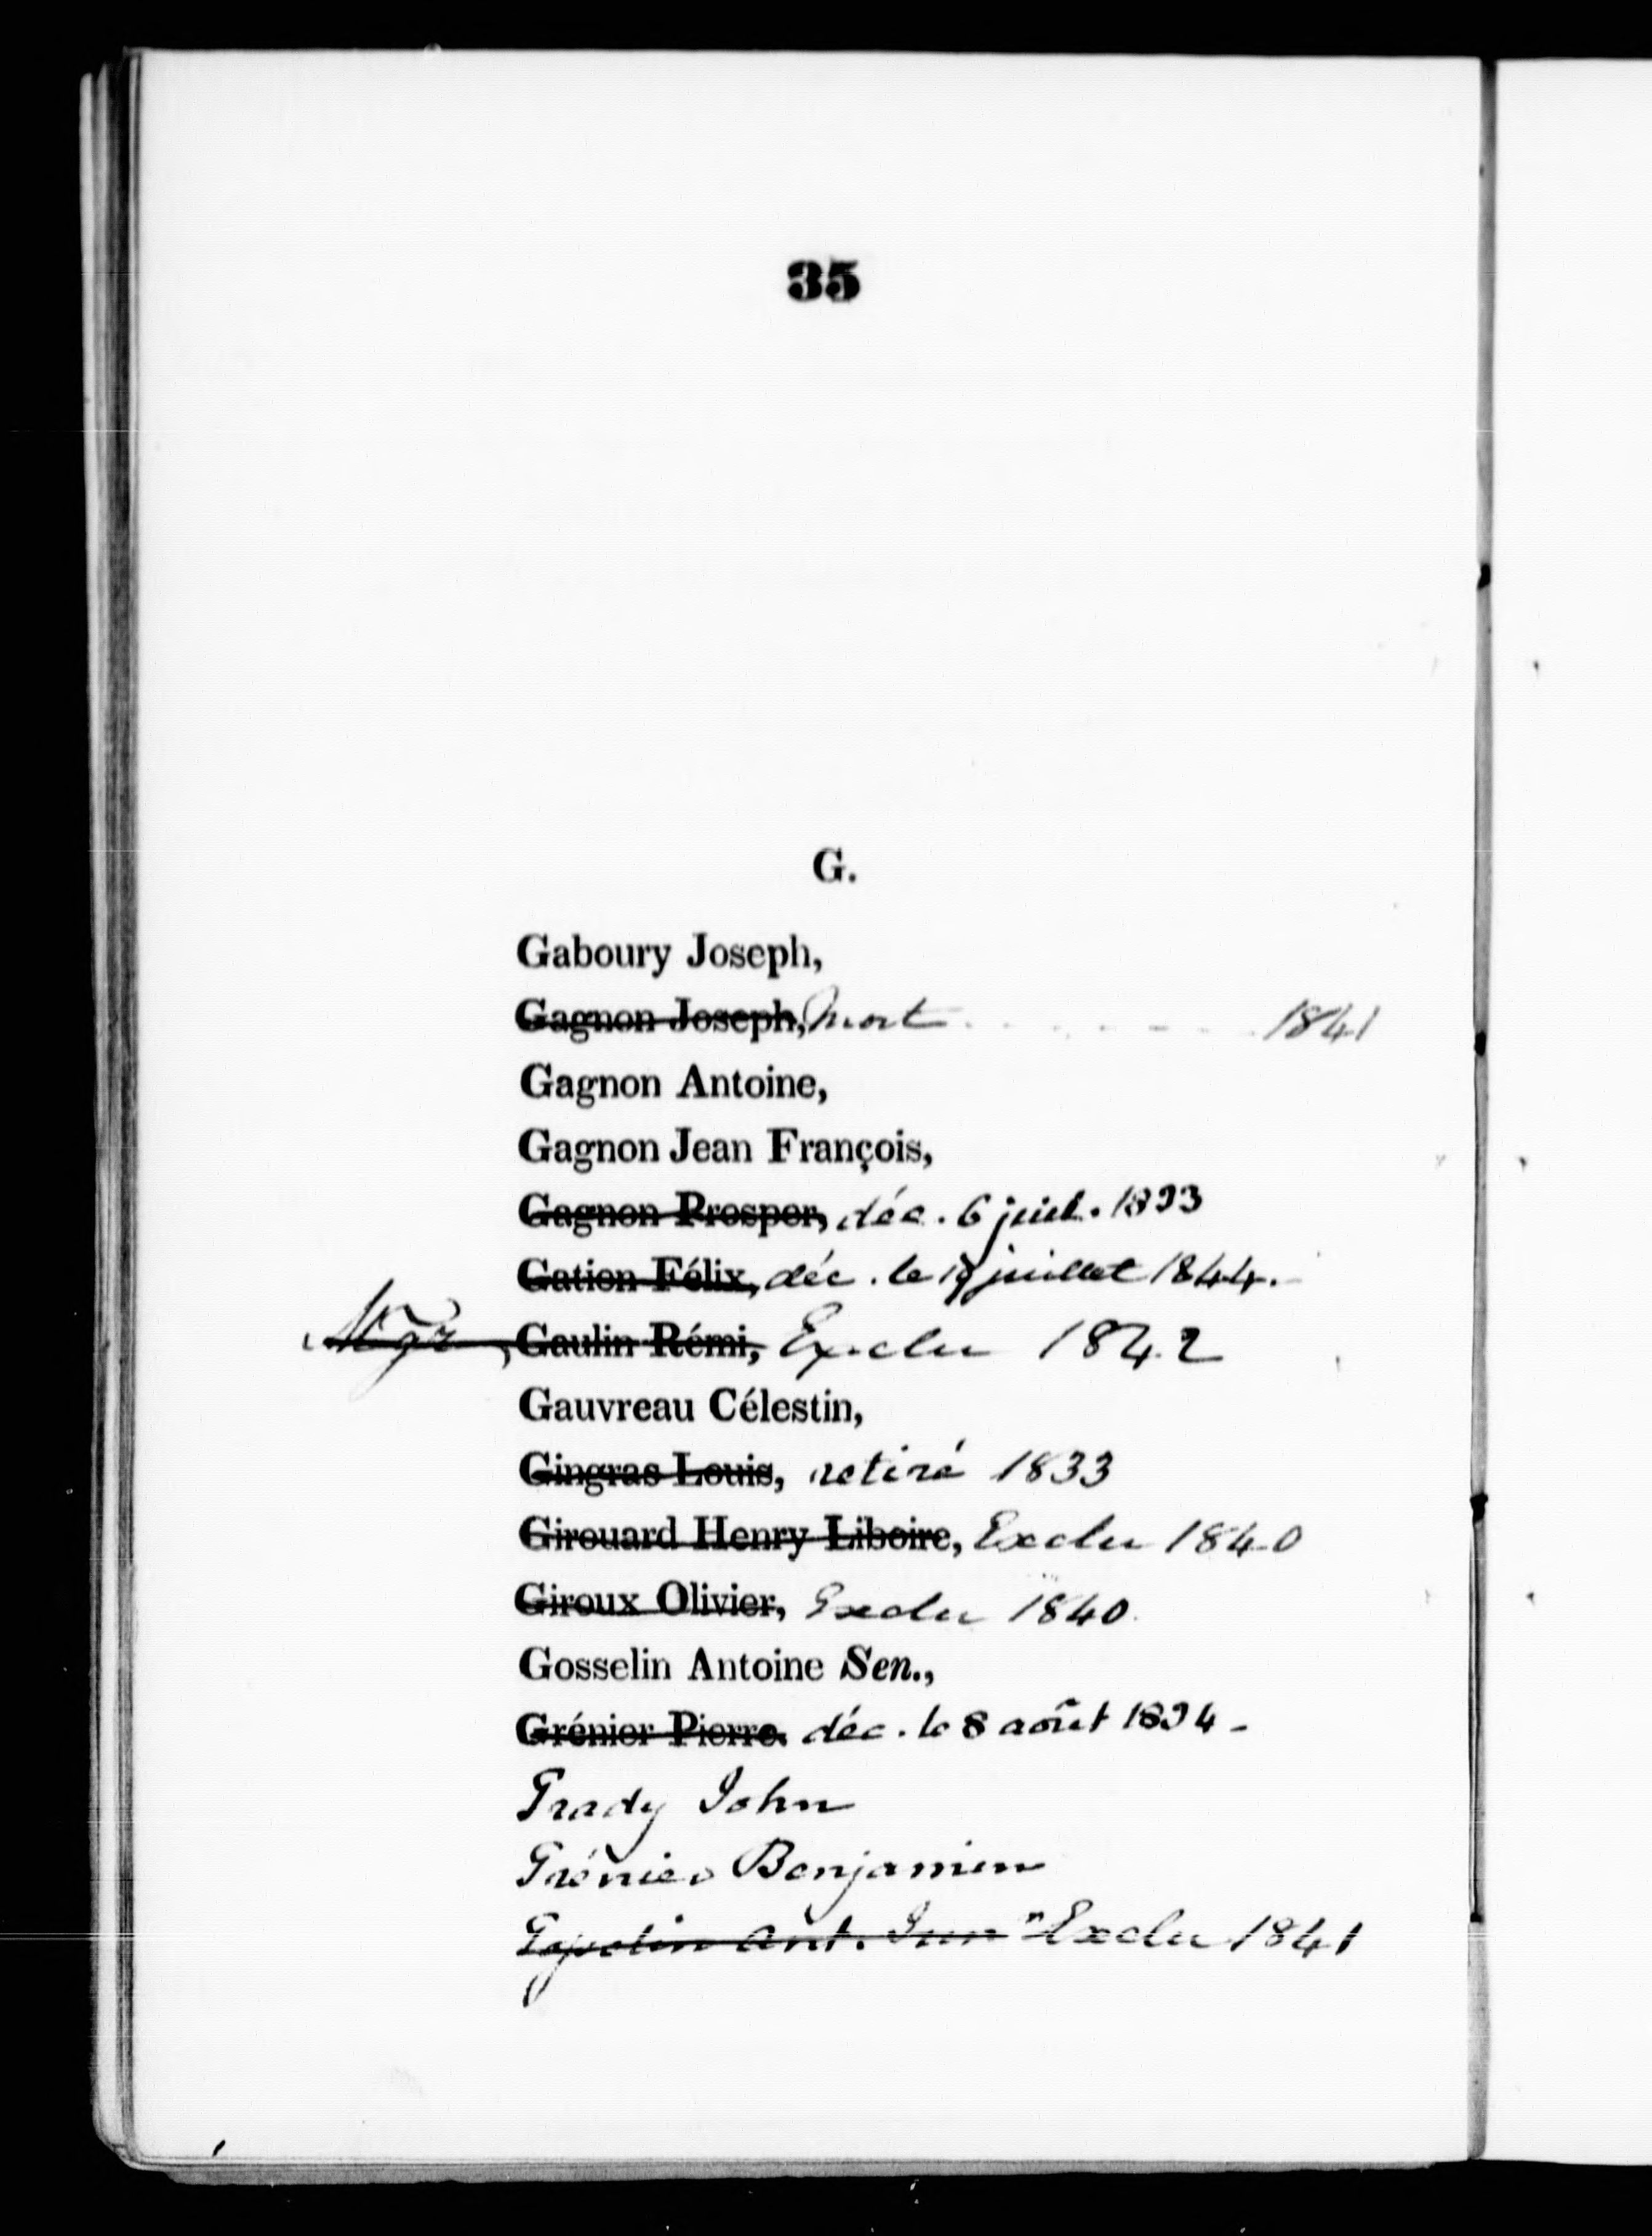 35
G.
Gaboury Joseph,
Gagnon Joseph, Mort 1841
Gagnon Antoine,
Gagnon Jean François,
Gagnon Prosper, déc. 6 juil. 1833
Gatien Félix, déc. le 19 juillet 1844.
Mgr Gaulin Rémi, Exclu 1842
Gauvreau Célestin,
Gingras Louis, retiré 1833
Girouard Henry Liboire, Exclu 1840
Giroux Olivier, Exclu 1840
Gosselin Antoine Sen.,
Grénier Pierre. déc. le 8 août 1834 -
Grady John
Grénier Benjamin
Ant. Jun Exclu 1841